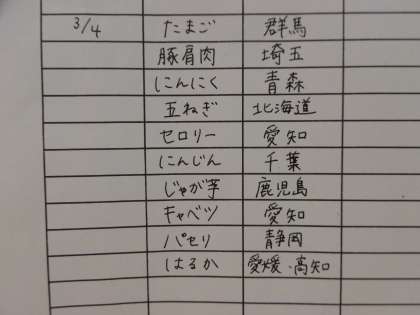 3/4 たまご 群馬
豚肩肉 埼玉
にんにく 青森
玉ねぎ 北海道
セロリー 愛知
にんじん 千葉
じゃが芋 鹿児島
キャベツ 愛知
パセリ 静岡
はるか 愛媛・高知